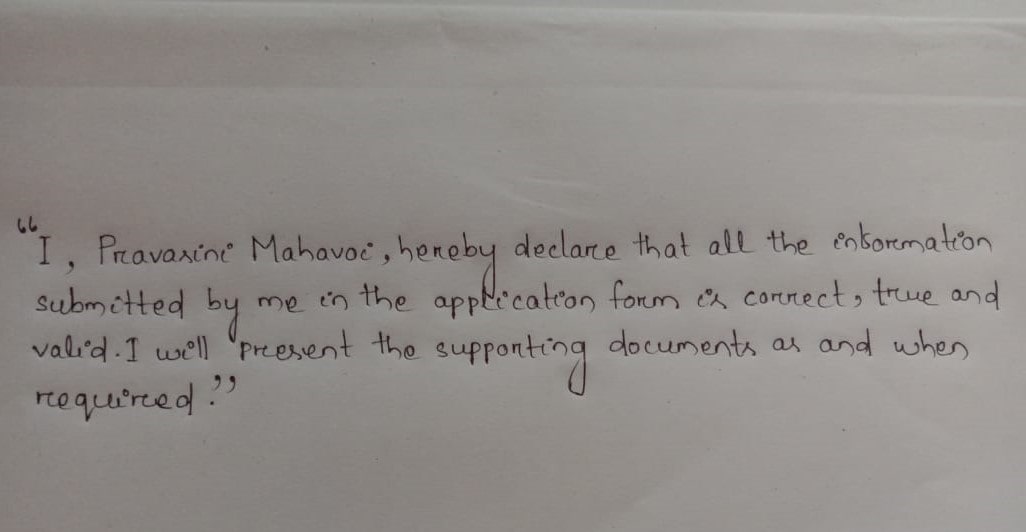 “I, Pravasini Mahavoi, hereby declare that all the information
submitted by me in the application form is correct, true and
valid. I will present the supporting documents as and when
required.”